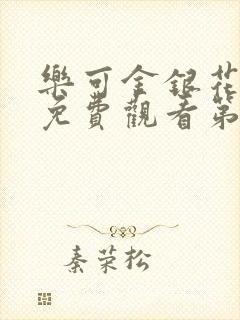 樂可金銀花
免費觀看第
秦荣松